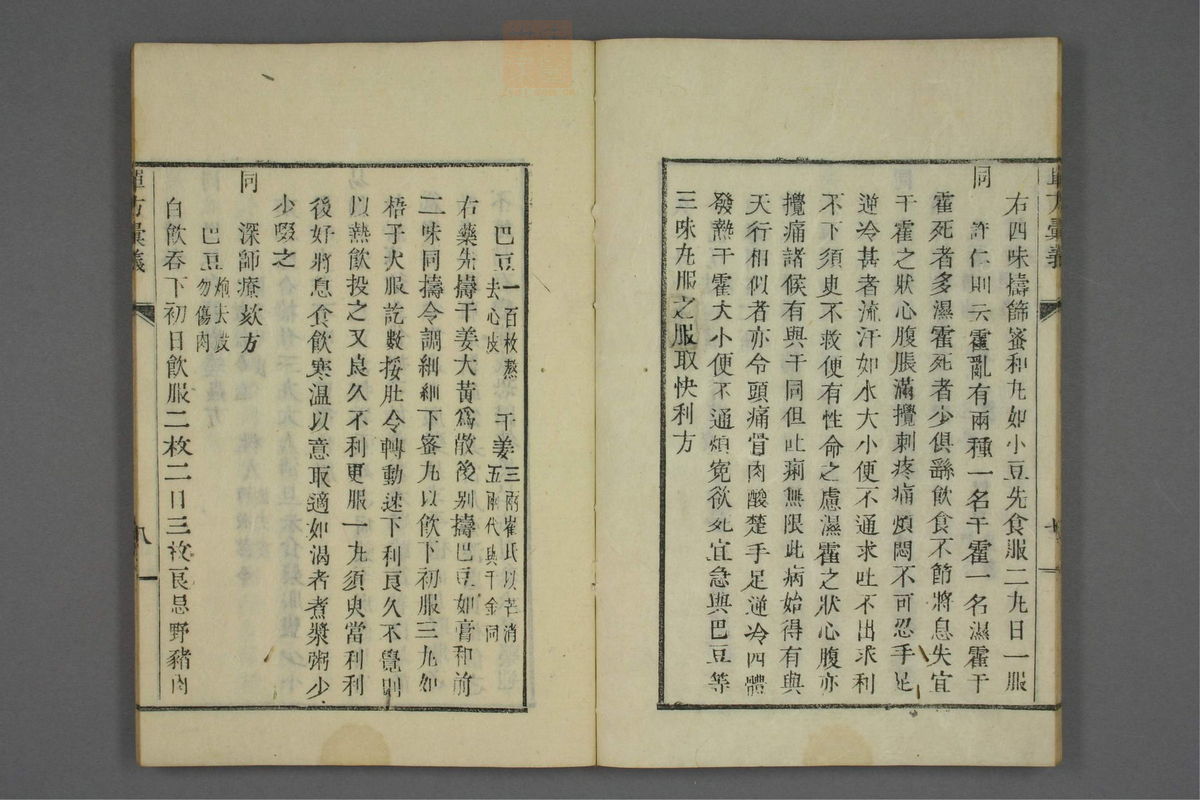 右四味擣篩蜜和丸如小豆先食服二丸日一服
同　許仁則云霍亂有兩種一名干霍一名濕霍干
霍死者多濕霍死者少俱繇飲食不節將息失宜
干霍之狀心腹脹滿攪刺疼痛煩悶不可忍手足
逆冷甚者流汗如水大小便不通求吐不出求利
不下須臾不救便有性命之慮濕霍之狀心腹亦
攪痛諸候有與干同但吐痢無限此病始得有與
天行相似者亦令頭痛骨肉酸楚手足逆冷四體
發熱干霍大小便不通煩寃欲死宜急與巴豆等
三味丸服之服取快利方
巴豆一百枚熬去心皮　干姜三兩崔氏以芒消五兩代與千金同
右藥先擣干姜大黃爲散後别擣巴豆如膏和前
二味同擣令調細細下蜜丸以飲下初服三丸如
梧子大服訖數挼肚令轉動速下利良久不覺則
以熱飲投之又良久不利更服一丸須臾當利利
後好將息食飲寒温以意取適如渴者煮漿粥少
少啜之
同　深師療欬方
巴豆炮去皮勿傷肉
白飲吞下初日飲服二枚二日三枚良忌野豬肉
單方彙義
八